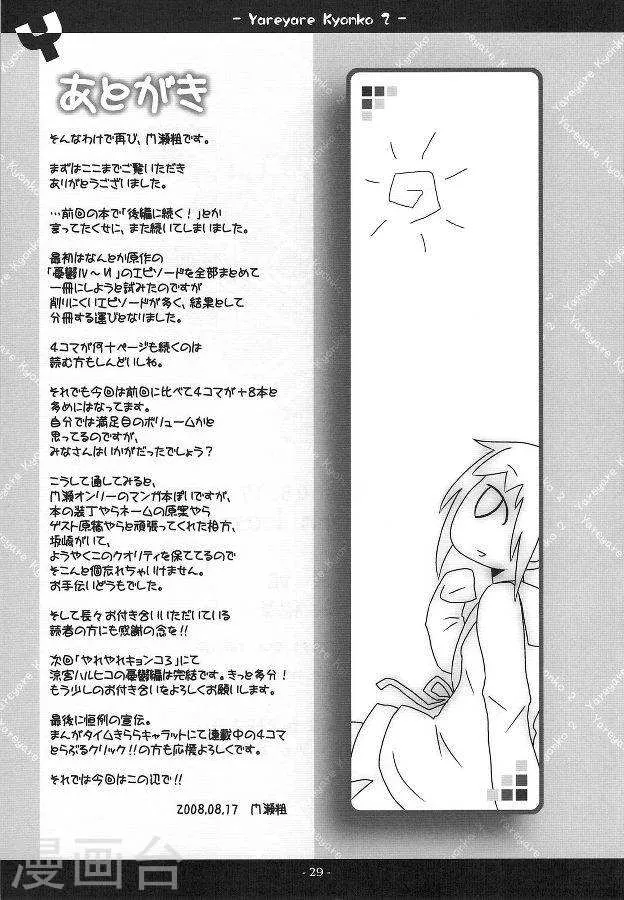 - Yareyare Kyonko 2 -
あとがき
そんなわけで再び、門瀬粗です。
まずはここまでご覧いただき
ありがとうございました。
…前回の本で「後編に続く!」とか
言ってたくせに、また続いてしまいました。
最初はなんとか原作の
「憂鬱Ⅳ～Ⅵ」のエピソードを全部まとめて
一冊にしようと試みたのですが
削りにくいエピソードが多く、結果として
分冊する運びとなりました。
4コマが何十ページも続くのは
読む方もしんどいしね。
それでも今回は前回に比べて4コマが+8本と
多めにはなってます。
自分では満足目のボリュームかと
思ってるのですが、
みなさんはいかがだったでしょう?
こうして通してみると、
門瀬オンリーのマンガ本ぽいですが、
本の装丁やらネームの原案やら
ゲスト原稿やらと頑張ってくれた相方、
坂崎がいて、
ようやくこのクオリティを保ててるので
そこんと個忘れちゃいけません。
お手伝いどうもでした。
そして長々お付き合いいただいている
読者の方にも感謝の念を!!
次回「やれやれキョンコ3」にて
涼宮ハルヒコの憂鬱編は完結です。きっと多分!
もう少しのお付き合いをよろしくお願いします。
最後に恒例の宣伝。
まんがタイムきららキャラットにて連載中の4コマ
とらぶるクリック!!の方も応援よろしくです。
それでは今回はこの辺で!!
2008.08.17 門瀬粗
- 29 -
漫画台